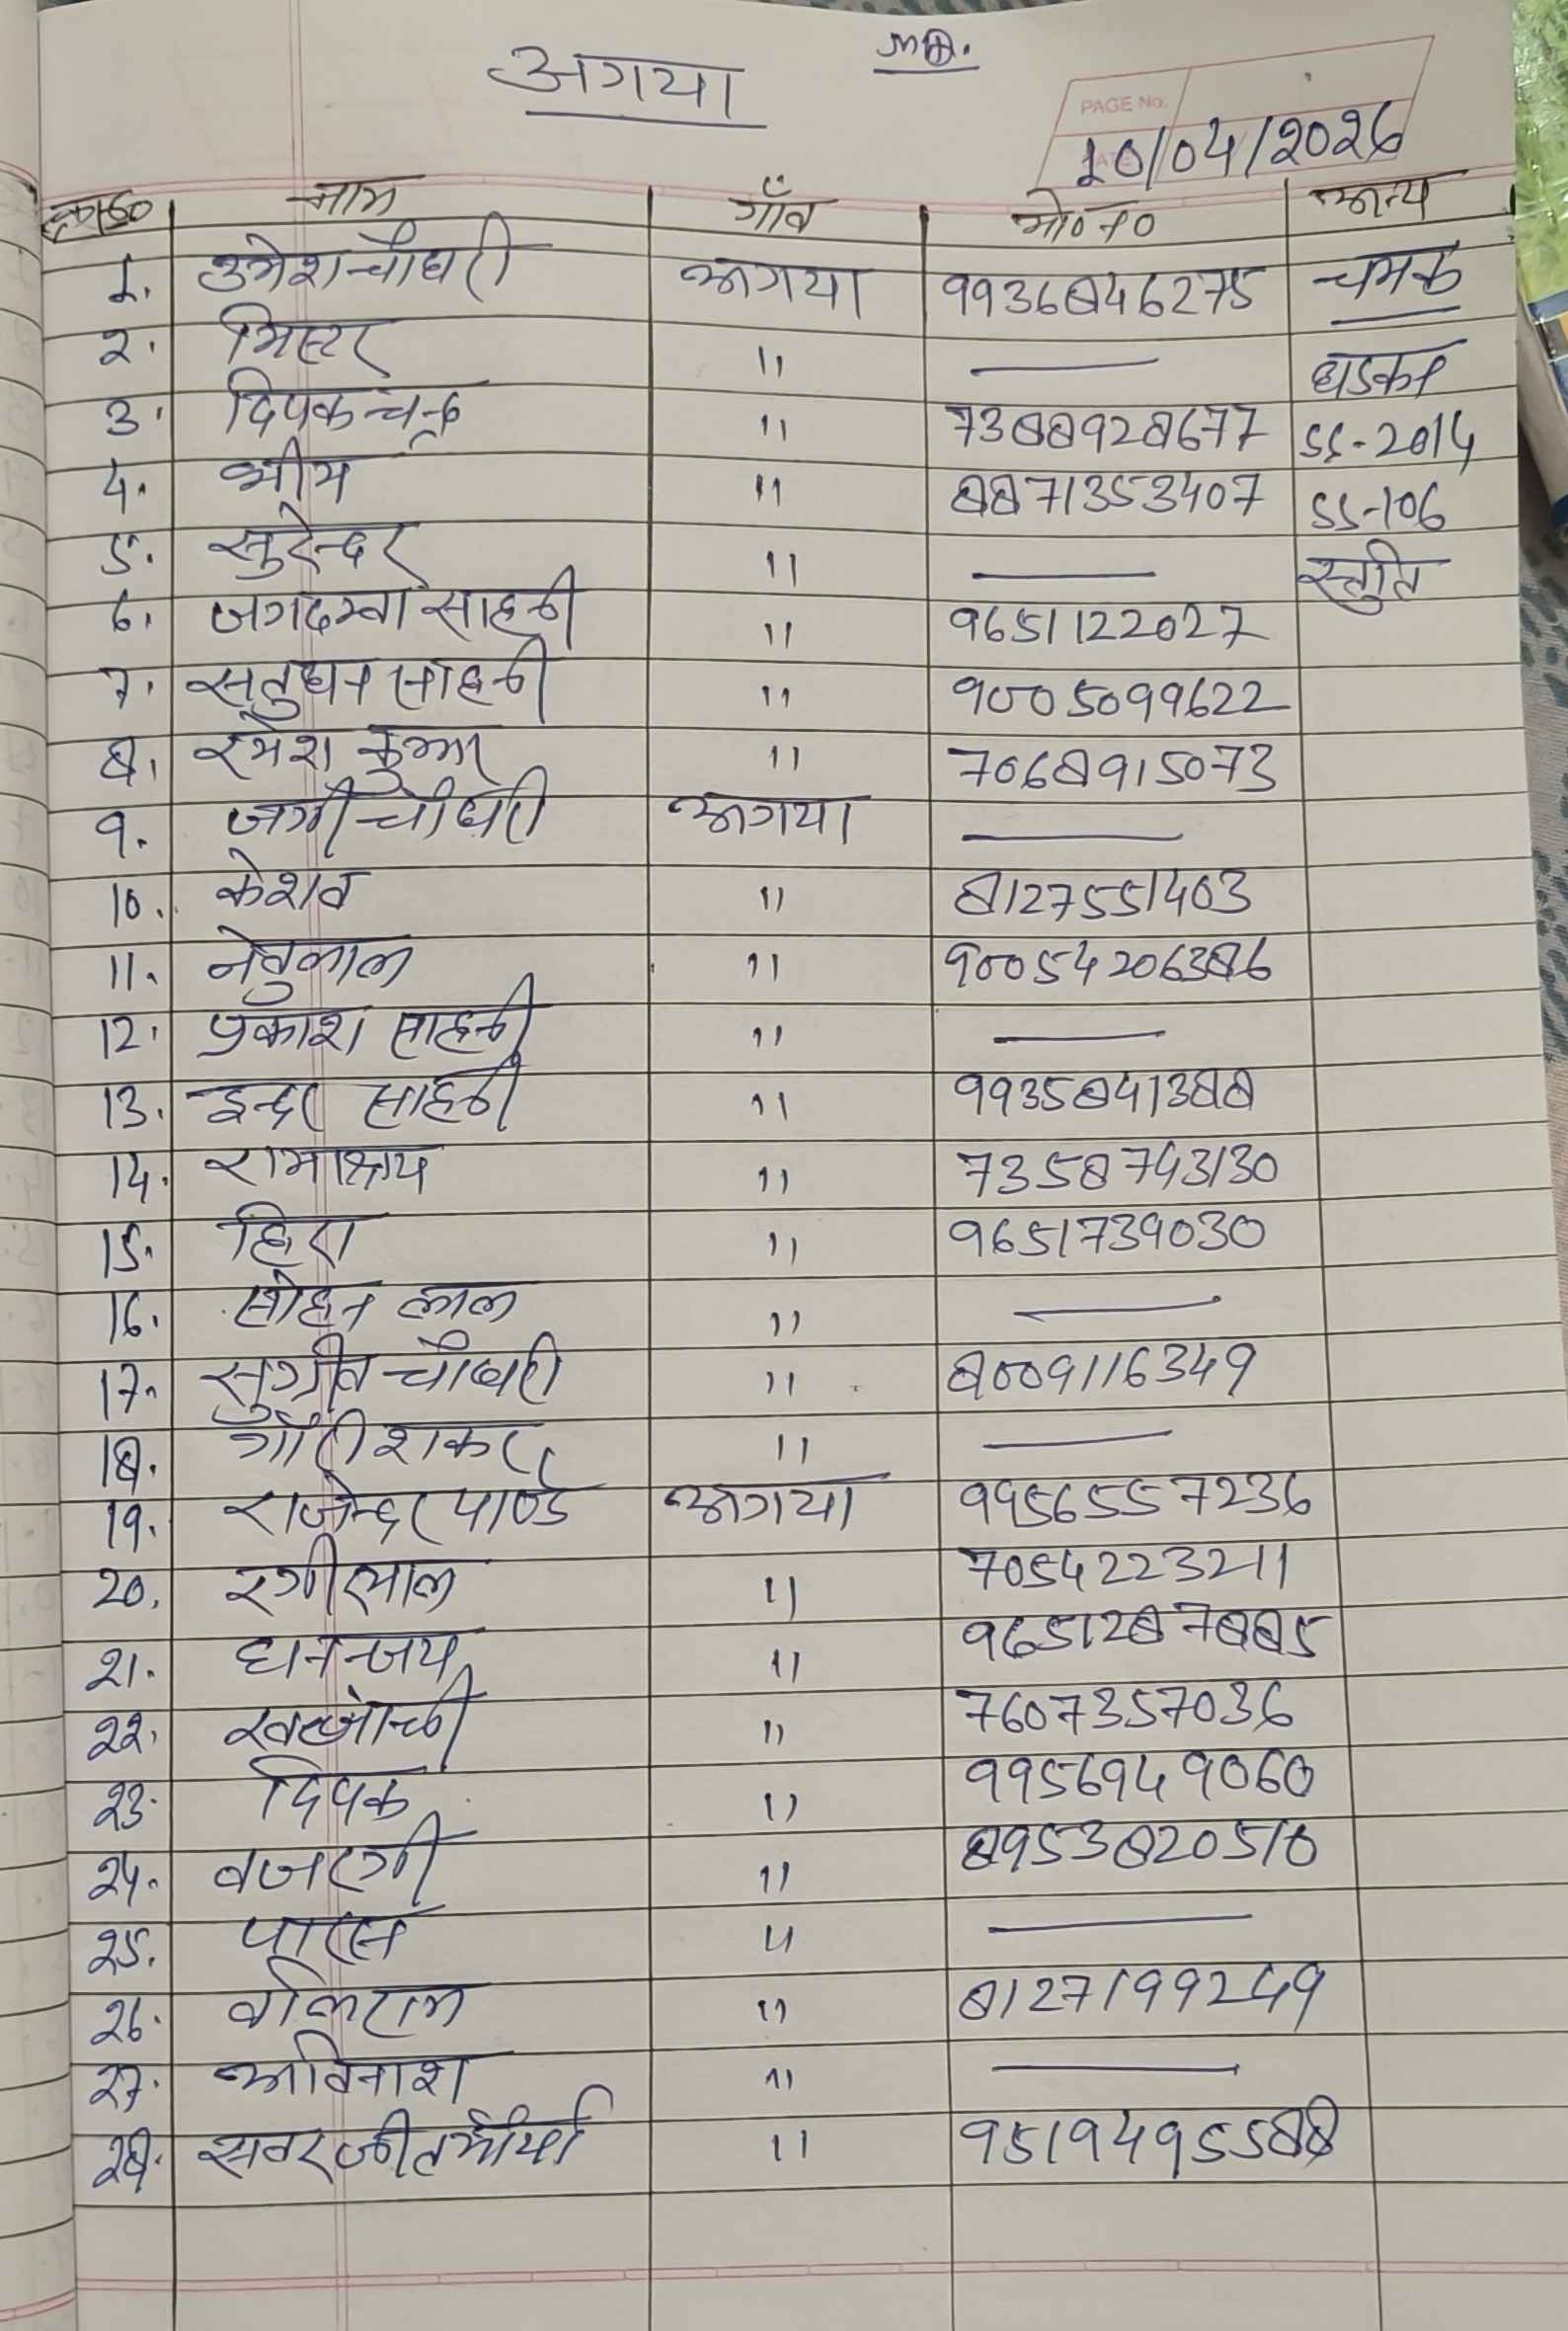 अगया
PAGE No.
10/04/2026
क्र०सं० नाम गाँव मो० न० अन्य
1. उमेश चौधरी अगया 9936846275 चमक
2. मिस्टर " — धडकन
3. दिपक चन्द्र " 7388928677 SS-2014
4. भीम " 8871353407 SS-106
5. सुरेन्दर " — स्तुति
6. जगदम्वा साहनी " 9651122027
7. सत्रुधन साहनी " 9005099622
8. रमेश कुमार " 7068915073
9. जंगी चौधरी अगया —
10. केशव " 8127551403
11. नेवुलाल " 90054206386
12. प्रकाश साहनी " —
13. इन्द्र साहनी " 9935841388
14. रामाश्रय " 7358743130
15. हिरा " 9651739030
16. सोहन लाल " —
17. सुग्रीव चौधरी " 8009116349
18. गौरी शंकर " —
19. राजेन्द्र पाण्डे अगया 9956557236
20. रंगीलाल " 7054223211
21. धनन्जय " 9651287885
22. " 7607357036
23. दिपक " 9956949060
24. वजरंगी " 8953820510
25. पारस " —
26. वलिराम " 8127199249
27. अविनाश " —
28. सवरजीत मौर्या " 9519495588